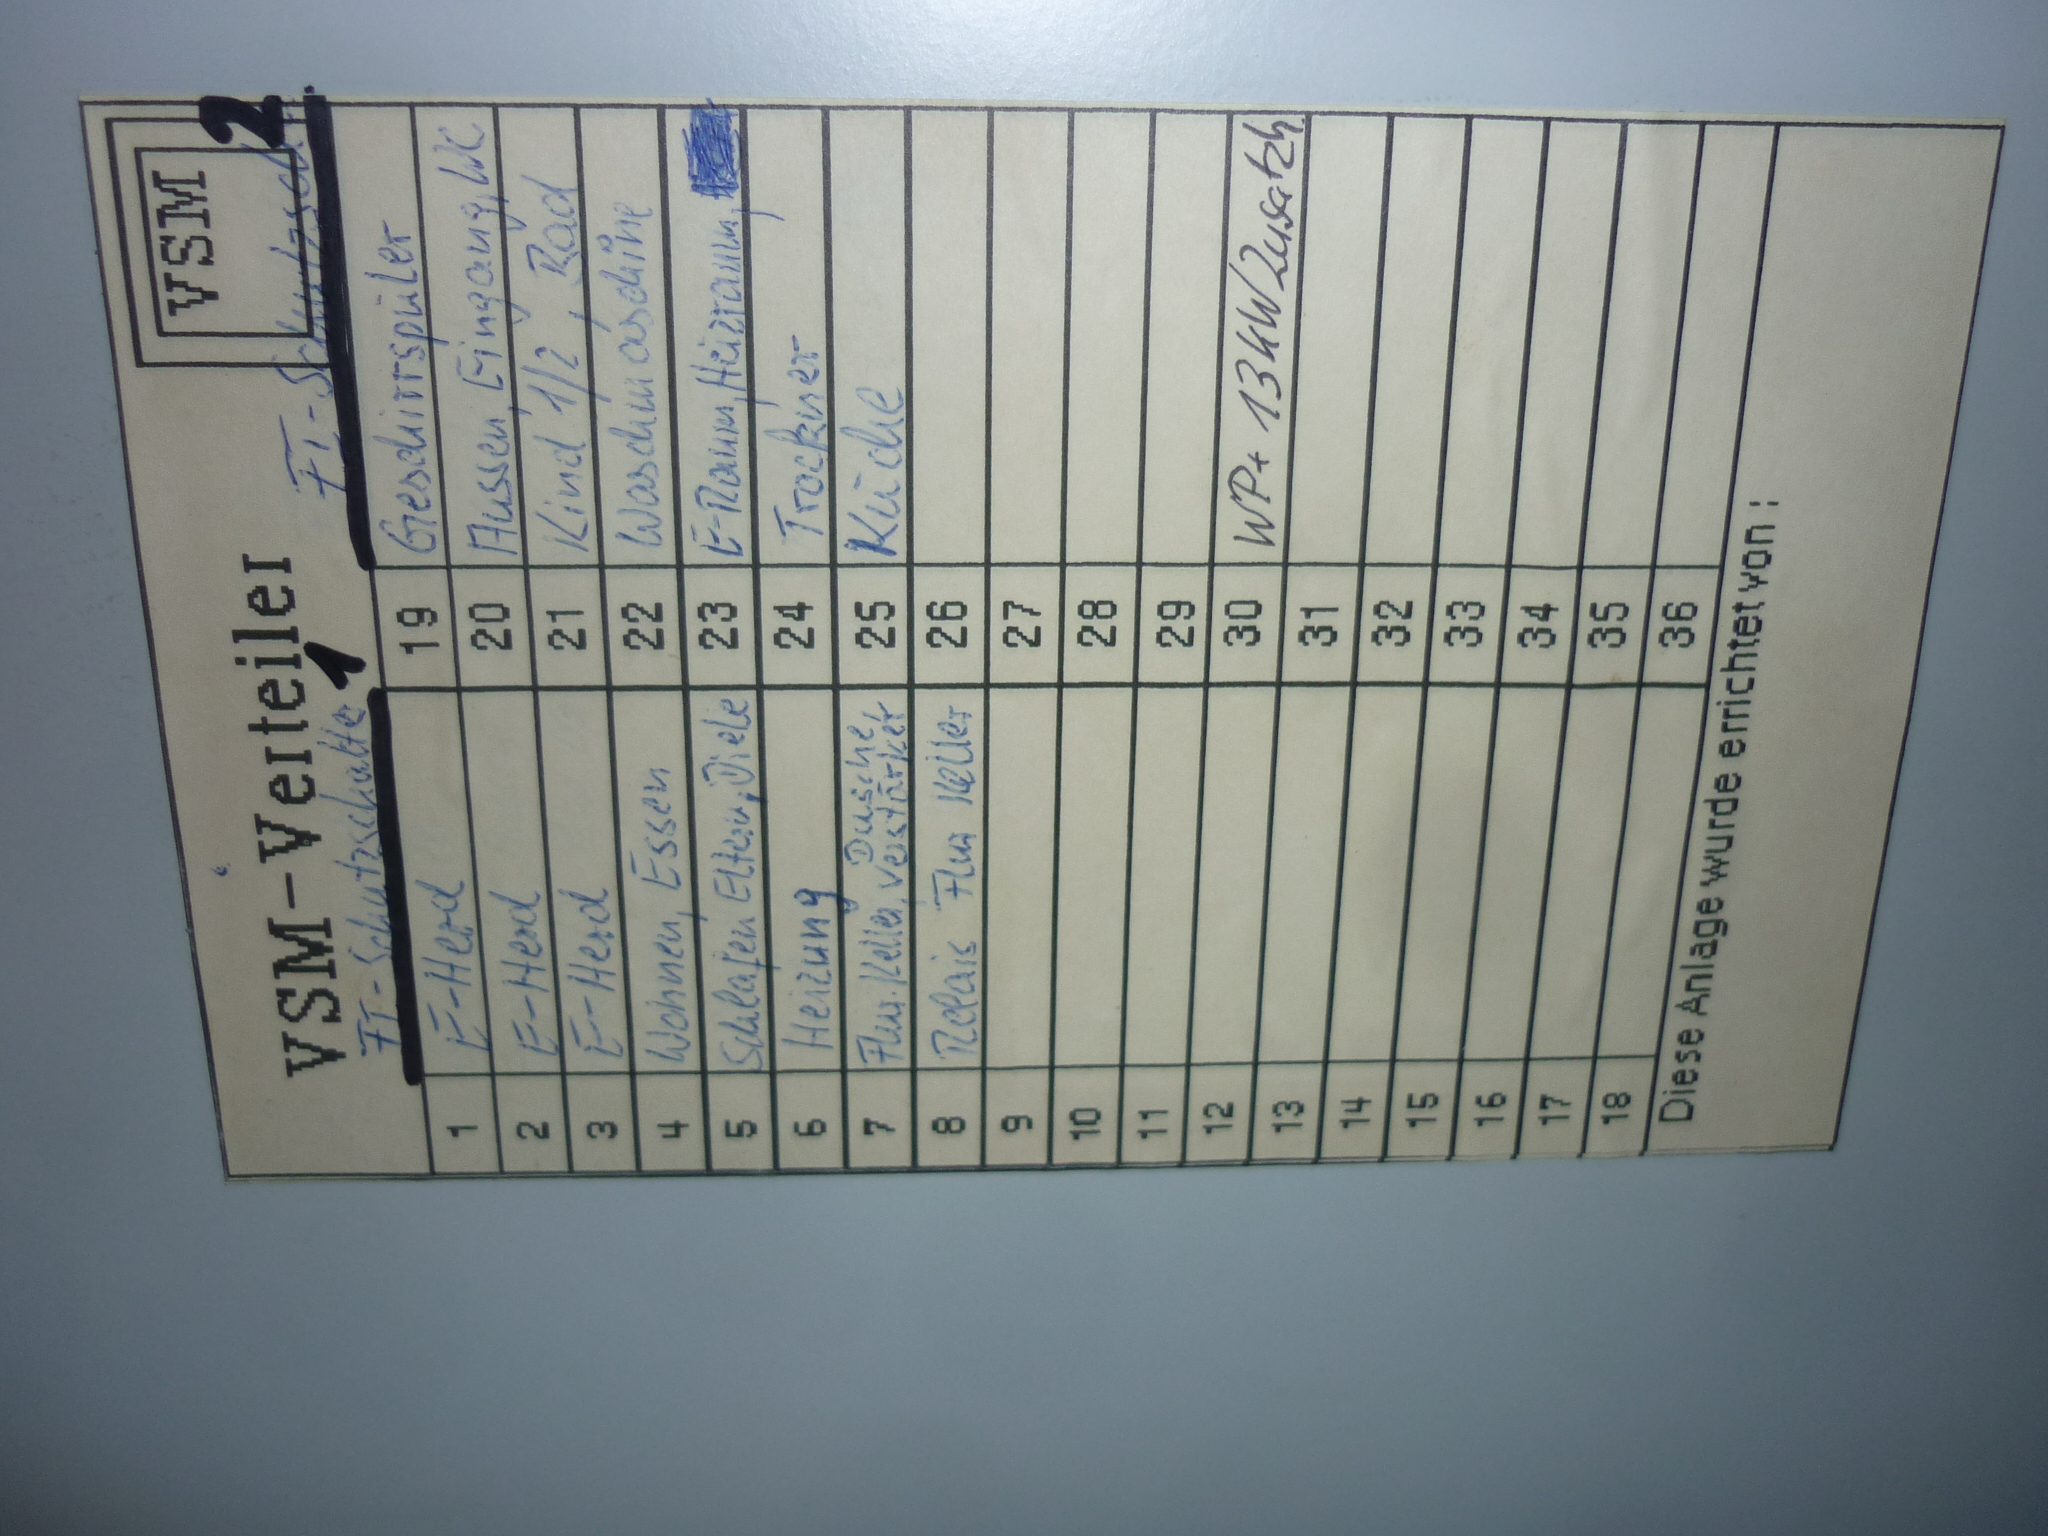 VSM-Verteiler
VSM
FI-Schutzschalter 1
FI-Schutzsch. 2
1 E-Herd
2 E-Herd
3 E-Herd
4 Wohnen, Essen
5 Schlafen Eltern, Diele
6 Heizung
7 Flur Keller, Dusche, Verstärker
8 Relais Flur Keller
9
10
11
12
13
14
15
16
17
18
19 Geschirrspüler
20 Aussen, Eingang,
21 Kind 1/2, Bad
22 Waschmaschine
23 E-Raum, Heizraum,
24 Trockner
25 Küche
26
27
28
29
30 WP+ 13kW Zusatzh.
31
32
33
34
35
36
Diese Anlage wurde errichtet von :